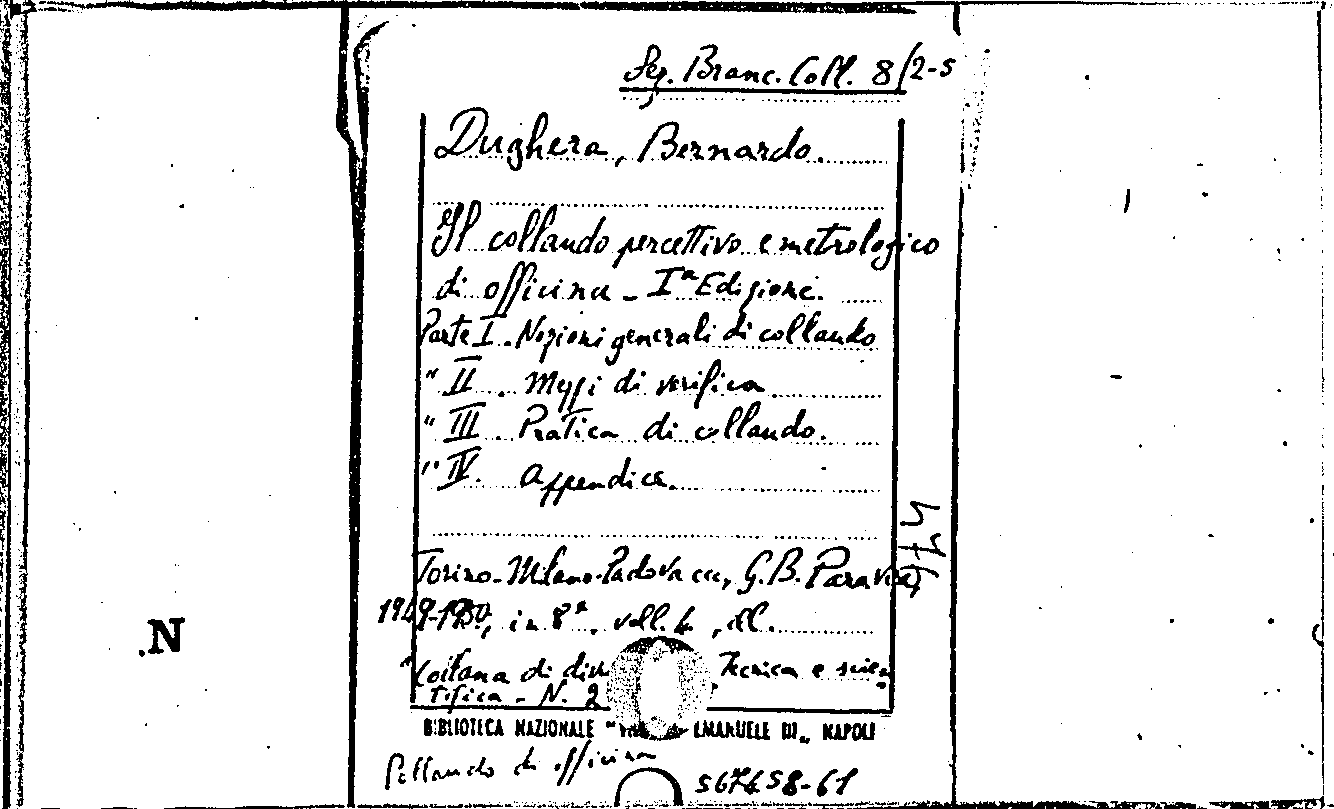 Sez. Branc. Coll. 8/2-5
Dughera, Bernardo.
Il collaudo percettivo e metrologico
di officina - Iª Edizione.
Parte I. Nozioni generali di collaudo
" II. Mezzi di verifica
" III. Pratica di collaudo.
" IV. Appendice.
Torino-Milano-Padova ecc, G.B. Paravia,
1949-1950, in 8°, voll. 4, ill.
"Collana di div Tecnica e scien
tifica - N. 2
BIBLIOTECA NAZIONALE " EMANUELE III" NAPOLI
Collaudo di officina
567458-61
N.